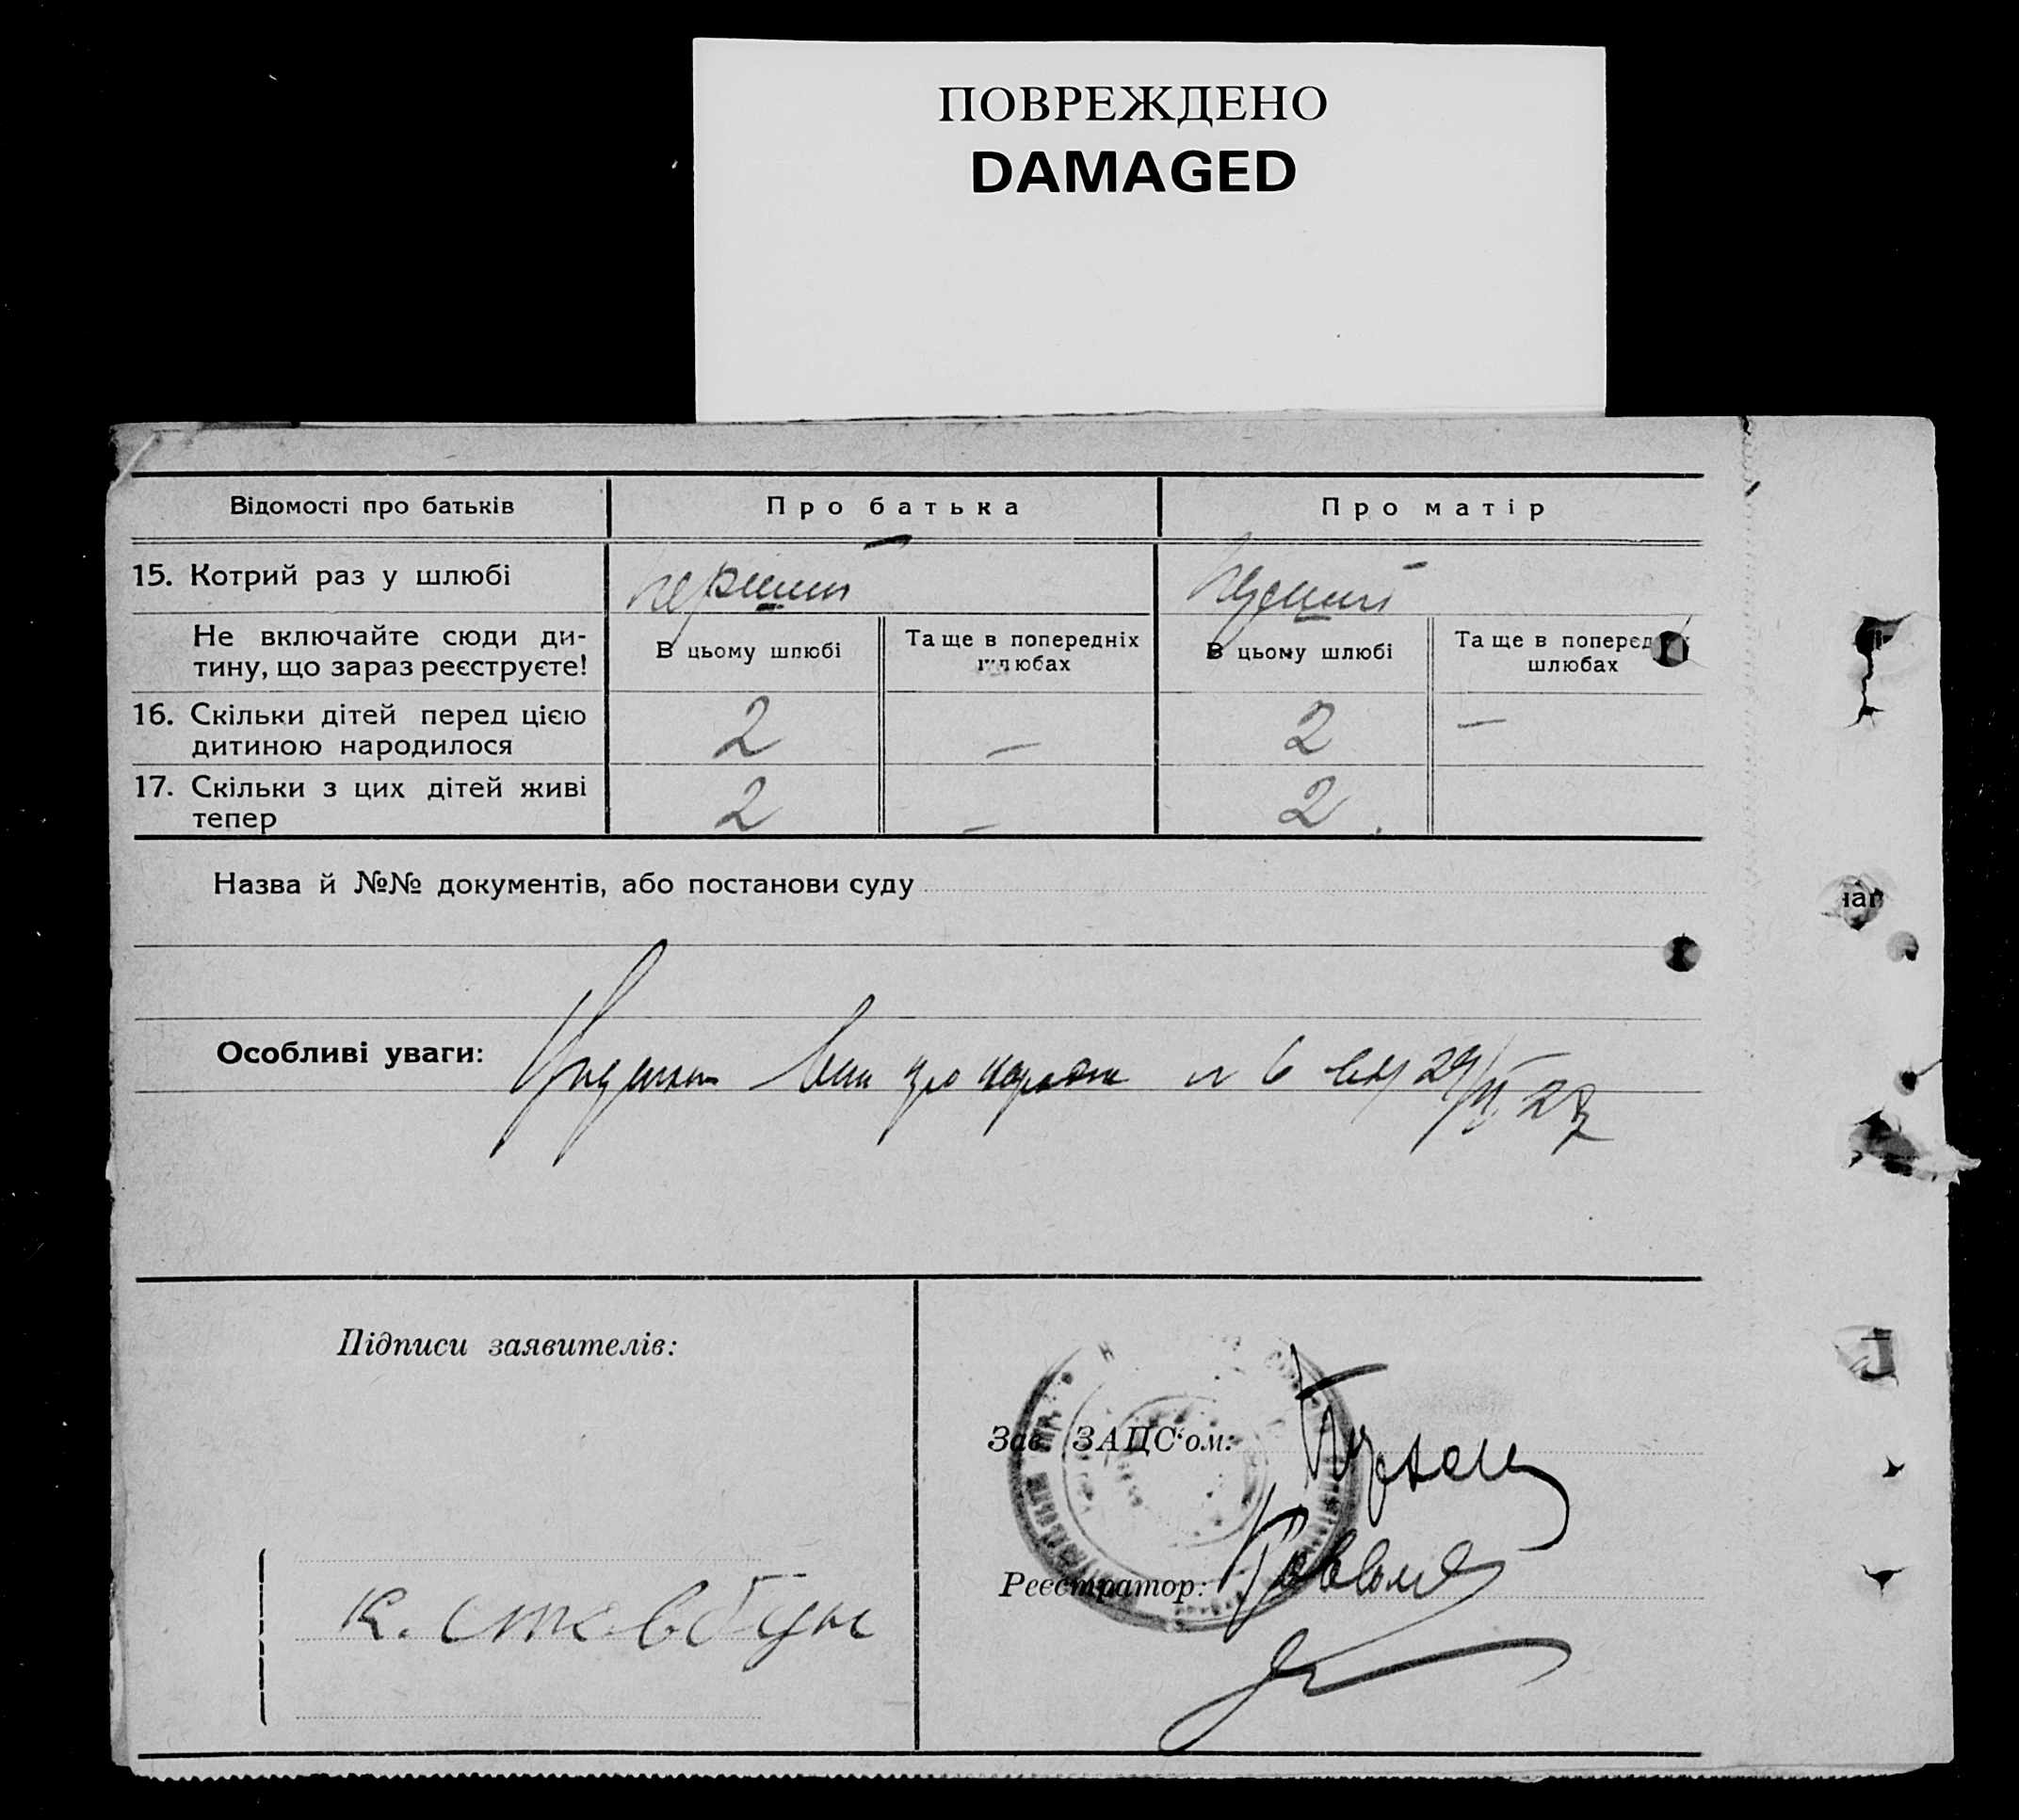 ПОВРЕЖДЕНО
DAMAGED
Відомості про батьків
Про батька
Про матір
15. Котрий раз у шлюбі
перший
перший
Не включайте сюди ди-
тину, що зараз реєструєте!
В цьому шлюбі
Та ще в попередніх
шлюбах
В цьому шлюбі
Та ще в поперед
шлюбах
16. Скільки дітей перед цією
дитиною народилося
2
—
2
—
17. Скільки з цих дітей живі
тепер
2
—
2
Назва й №№ документів, або постанови суду
Особливі уваги:
про 6 від 29/VI 27
Підписи заявителів:
Зав. ЗАЦС‘ом:
Реєстратор:
К. Ставбун